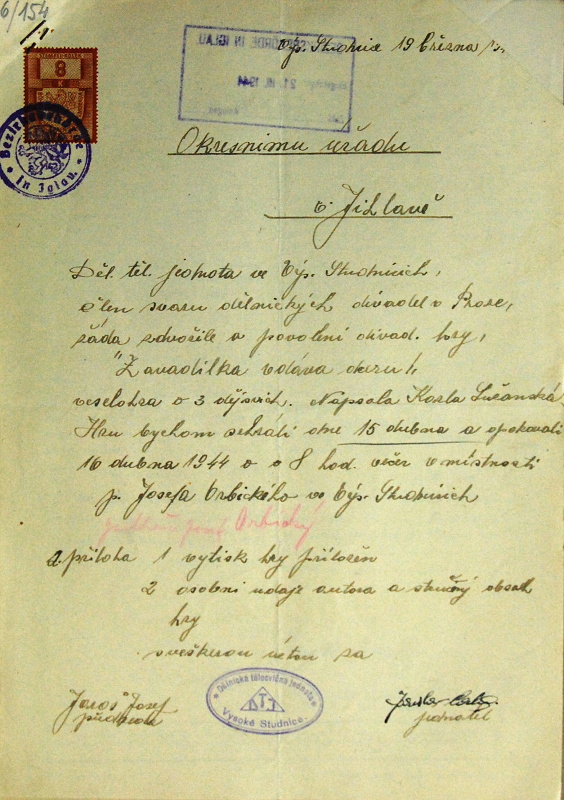 6/154
8
K
Bezirksbehörde in Iglau.
BEZIRKSBEHÖRDE IN IGLAU.
21. III. 1944
Výs. Studnice 19 března
Okresnímu úřadu
v Jihlavě
Děl. těl. jednota ve Výs. Studnicích,
člen svazu dělnických divadel v Praze,
žádá zdvořile o povolení divad. hry,
"Zavadilka vdává dceru",
veselohra o 3 dějsvích. Napsala Lučanská
Hru bychom sehráli dne 15 dubna a opakovali
16 dubna 1944 o 8 hod. večer v místnosti
p. Josefa Vrbického ve Výs. Studnicích
Josef Vrbický
příloha 1 výtisk hry přiložen
2 osobní údaje autora a stručný obsah
hry
s veškerou úctou za
Dělnická tělocvičná jednota
DTJ
Vysoké Studnice.
Jaroš Josef
předseda
jednatel